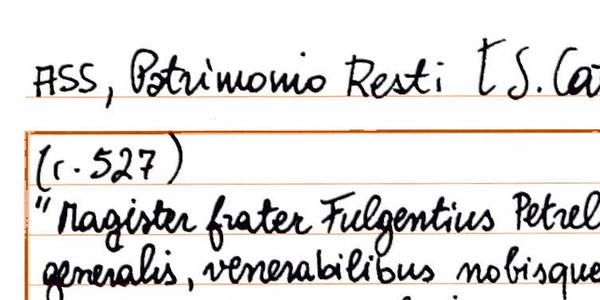 ASS, Patrimonio Resti [S. Ca
(c. 527)
"Magister frater Fulgentius Petrel
generalis, venerabilibus nobisque